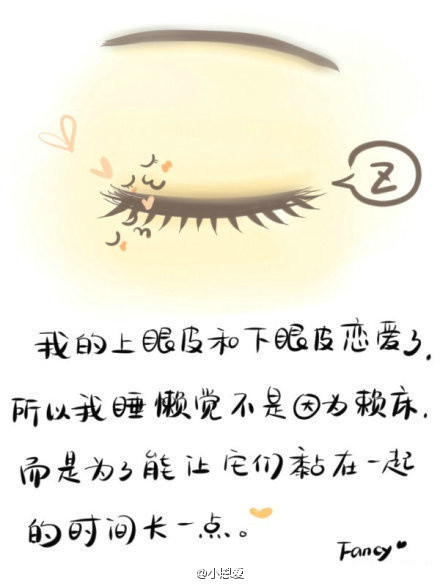 Z
我的上眼皮和下眼皮恋爱了,
所以我睡懒觉不是因为赖床,
而是为了能让它们黏在一起
的时间长一点。
Fancy